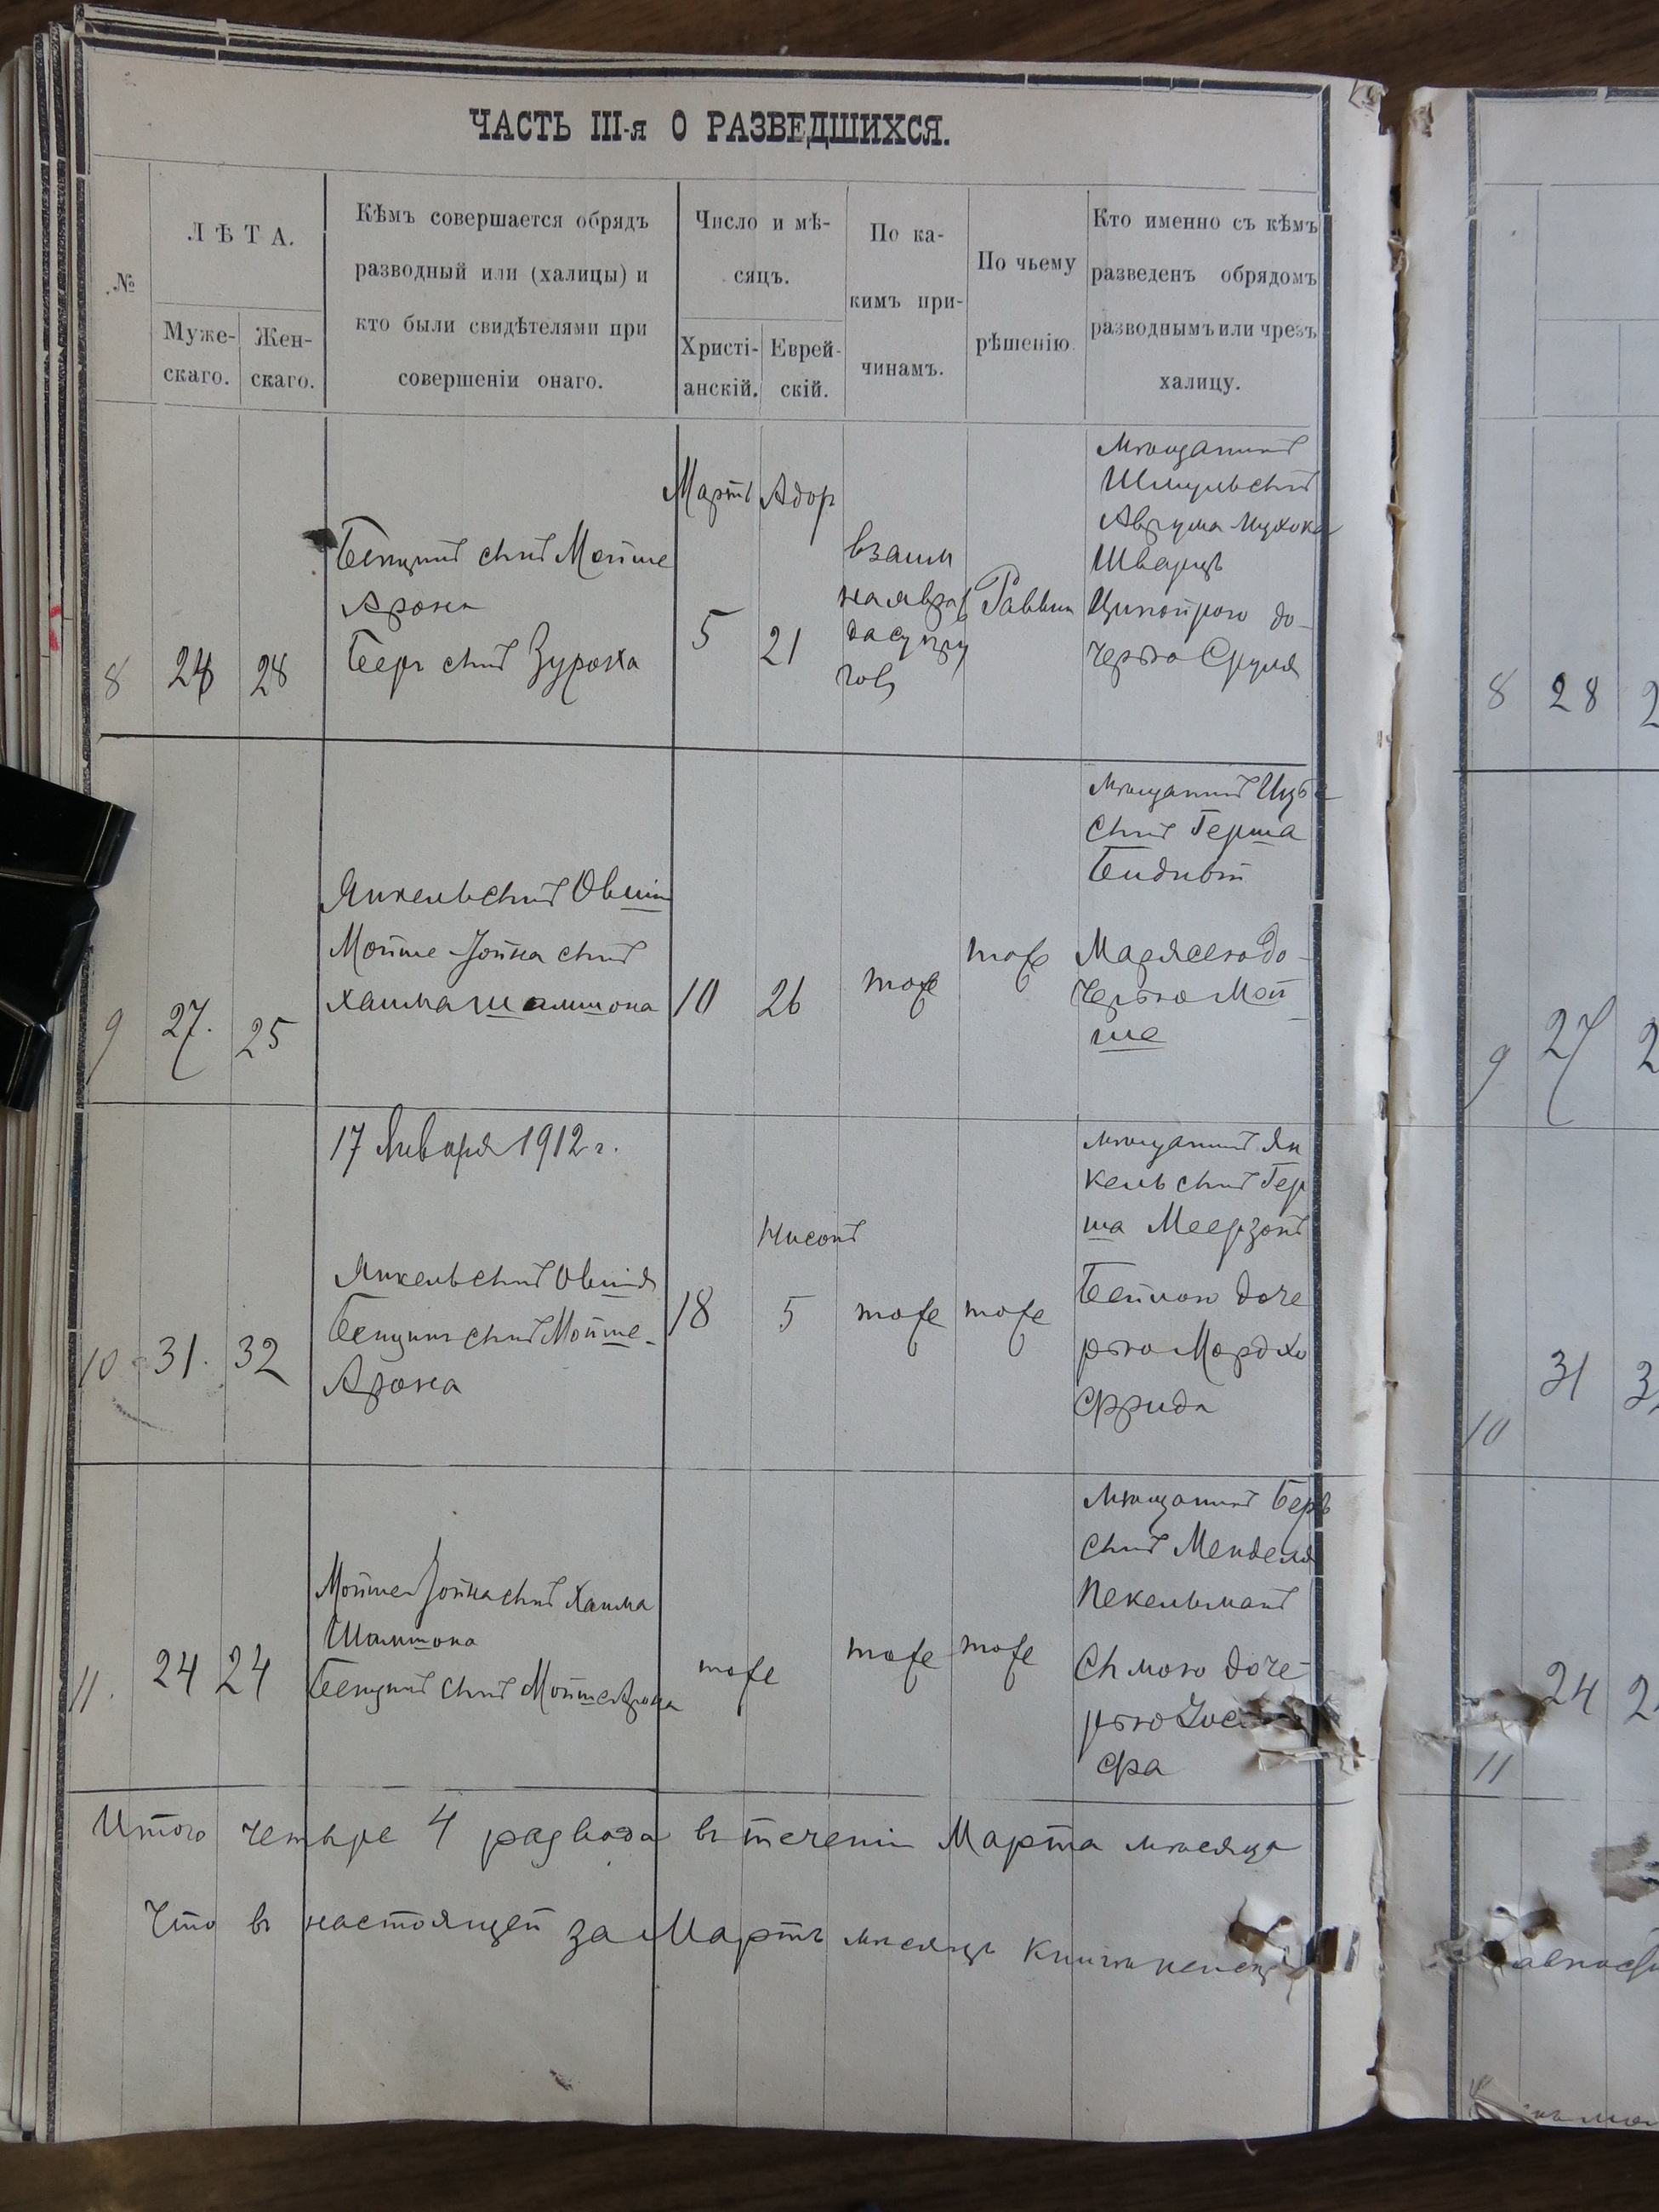 ЧАСТЬ III-я О РАЗВЕДШИХСЯ.
№
ЛѢТА.
Муже-
скаго.
Жен-
скаго.
Кѣмъ совершается обрядъ
разводный или (халицы) и
кто были свидѣтелями при
совершеніи онаго.
Число и мѣ-
сяцъ.
Христі-
анскій.
Еврей-
скій.
По ка-
кимъ при-
чинамъ.
По чьему
рѣшенію.
Кто именно съ кѣмъ
разведенъ обрядомъ
разводнымъ или чрезъ
халицу.
8
28
Бенционъ сынъ Мойше
Арона
Беръ сынъ
Мартъ
5
Адор
21
взаим
ная вра
да супру
говъ
Раввин
мѣщанинъ
Шмуль сынъ
Аврума
Шварцъ
до-
черью Сруля
9
27.
25
Янкель сынъ Овшія
Мойше Зойна сынъ
Хаима Шамшона
10
26
тоже
тоже
мѣщанинъ
сынъ Герша
Марясею до-
черью Мой
ше
17 Января 1912 г.
10
31.
32
Янкель сынъ Овшія
Бенционъ сынъ Мойше-
Арона
18
Нисонъ
5
тоже
тоже
мѣщанинъ Ян
кель сынъ Гер
ша Меерзонъ
Бейлою доче
рью Мордхо
Фрида
11.
24
24
Мойше Зойна сынъ Хаима
Шамшона
Бенционъ сынъ Мойше Арона
тоже
тоже
тоже
мѣщанинъ Беръ
сынъ Менделя
Пекельманъ
доче-
рью
Итого четыре 4 развода въ теченіи Марта мѣсяца
Что въ настоящей за Мартъ мѣсяцъ книгѣ
8
28
2
9
27
2
10
31
3
11
24
2